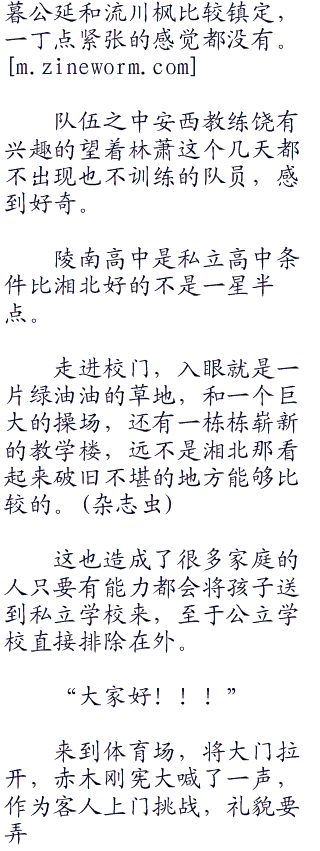 暮公延和流川枫比较镇定，
一丁点紧张的感觉都没有。
[m.zineworm.com]
队伍之中安西教练饶有
兴趣的望着林萧这个几天都
不出现也不训练的队员，感
到好奇。
陵南高中是私立高中条
件比湘北好的不是一星半
点。
走进校门，入眼就是一
片绿油油的草地，和一个巨
大的操场，还有一栋栋崭新
的教学楼，远不是湘北那看
起来破旧不堪的地方能够比
较的。(杂志虫)
这也造成了很多家庭的
人只要有能力都会将孩子送
到私立学校来，至于公立学
校直接排除在外。
“大家好！！！”
来到体育场，将大门拉
开，赤木刚宪大喊了一声，
作为客人上门挑战，礼貌要
弄